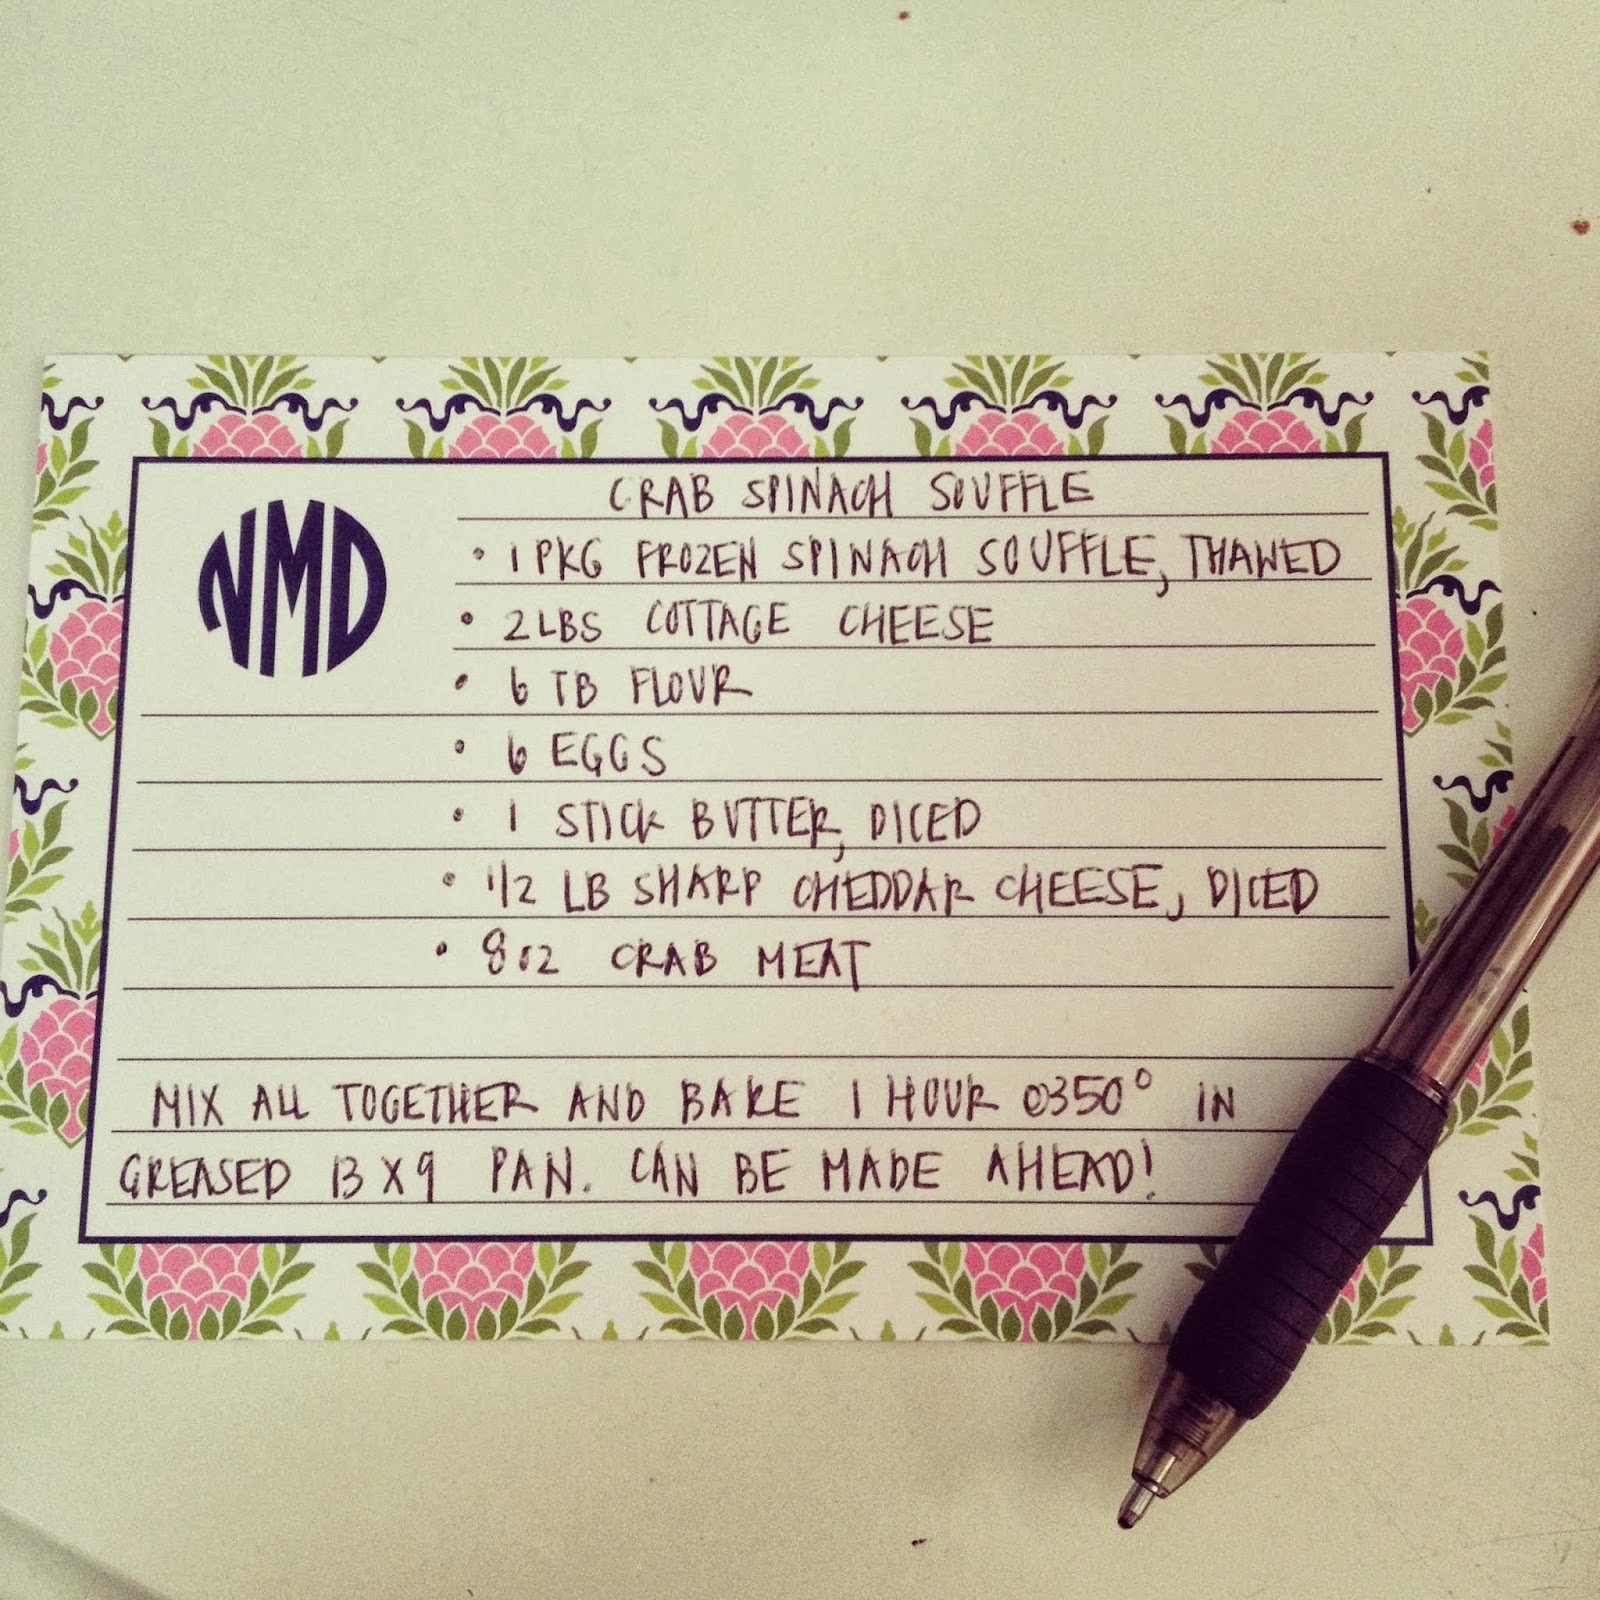 NMD
CRAB SPINACH SOUFFLE
• 1 PKG FROZEN SPINACH SOUFFLE, THAWED
• 2 LBS COTTAGE CHEESE
• 6 TB FLOUR
• 6 EGGS
• 1 STICK BUTTER, DICED
• 1/2 LB SHARP CHEDDAR CHEESE, DICED
• 8 OZ CRAB MEAT
MIX ALL TOGETHER AND BAKE 1 HOUR @350° IN
GREASED 13 X 9 PAN. CAN BE MADE AHEAD!